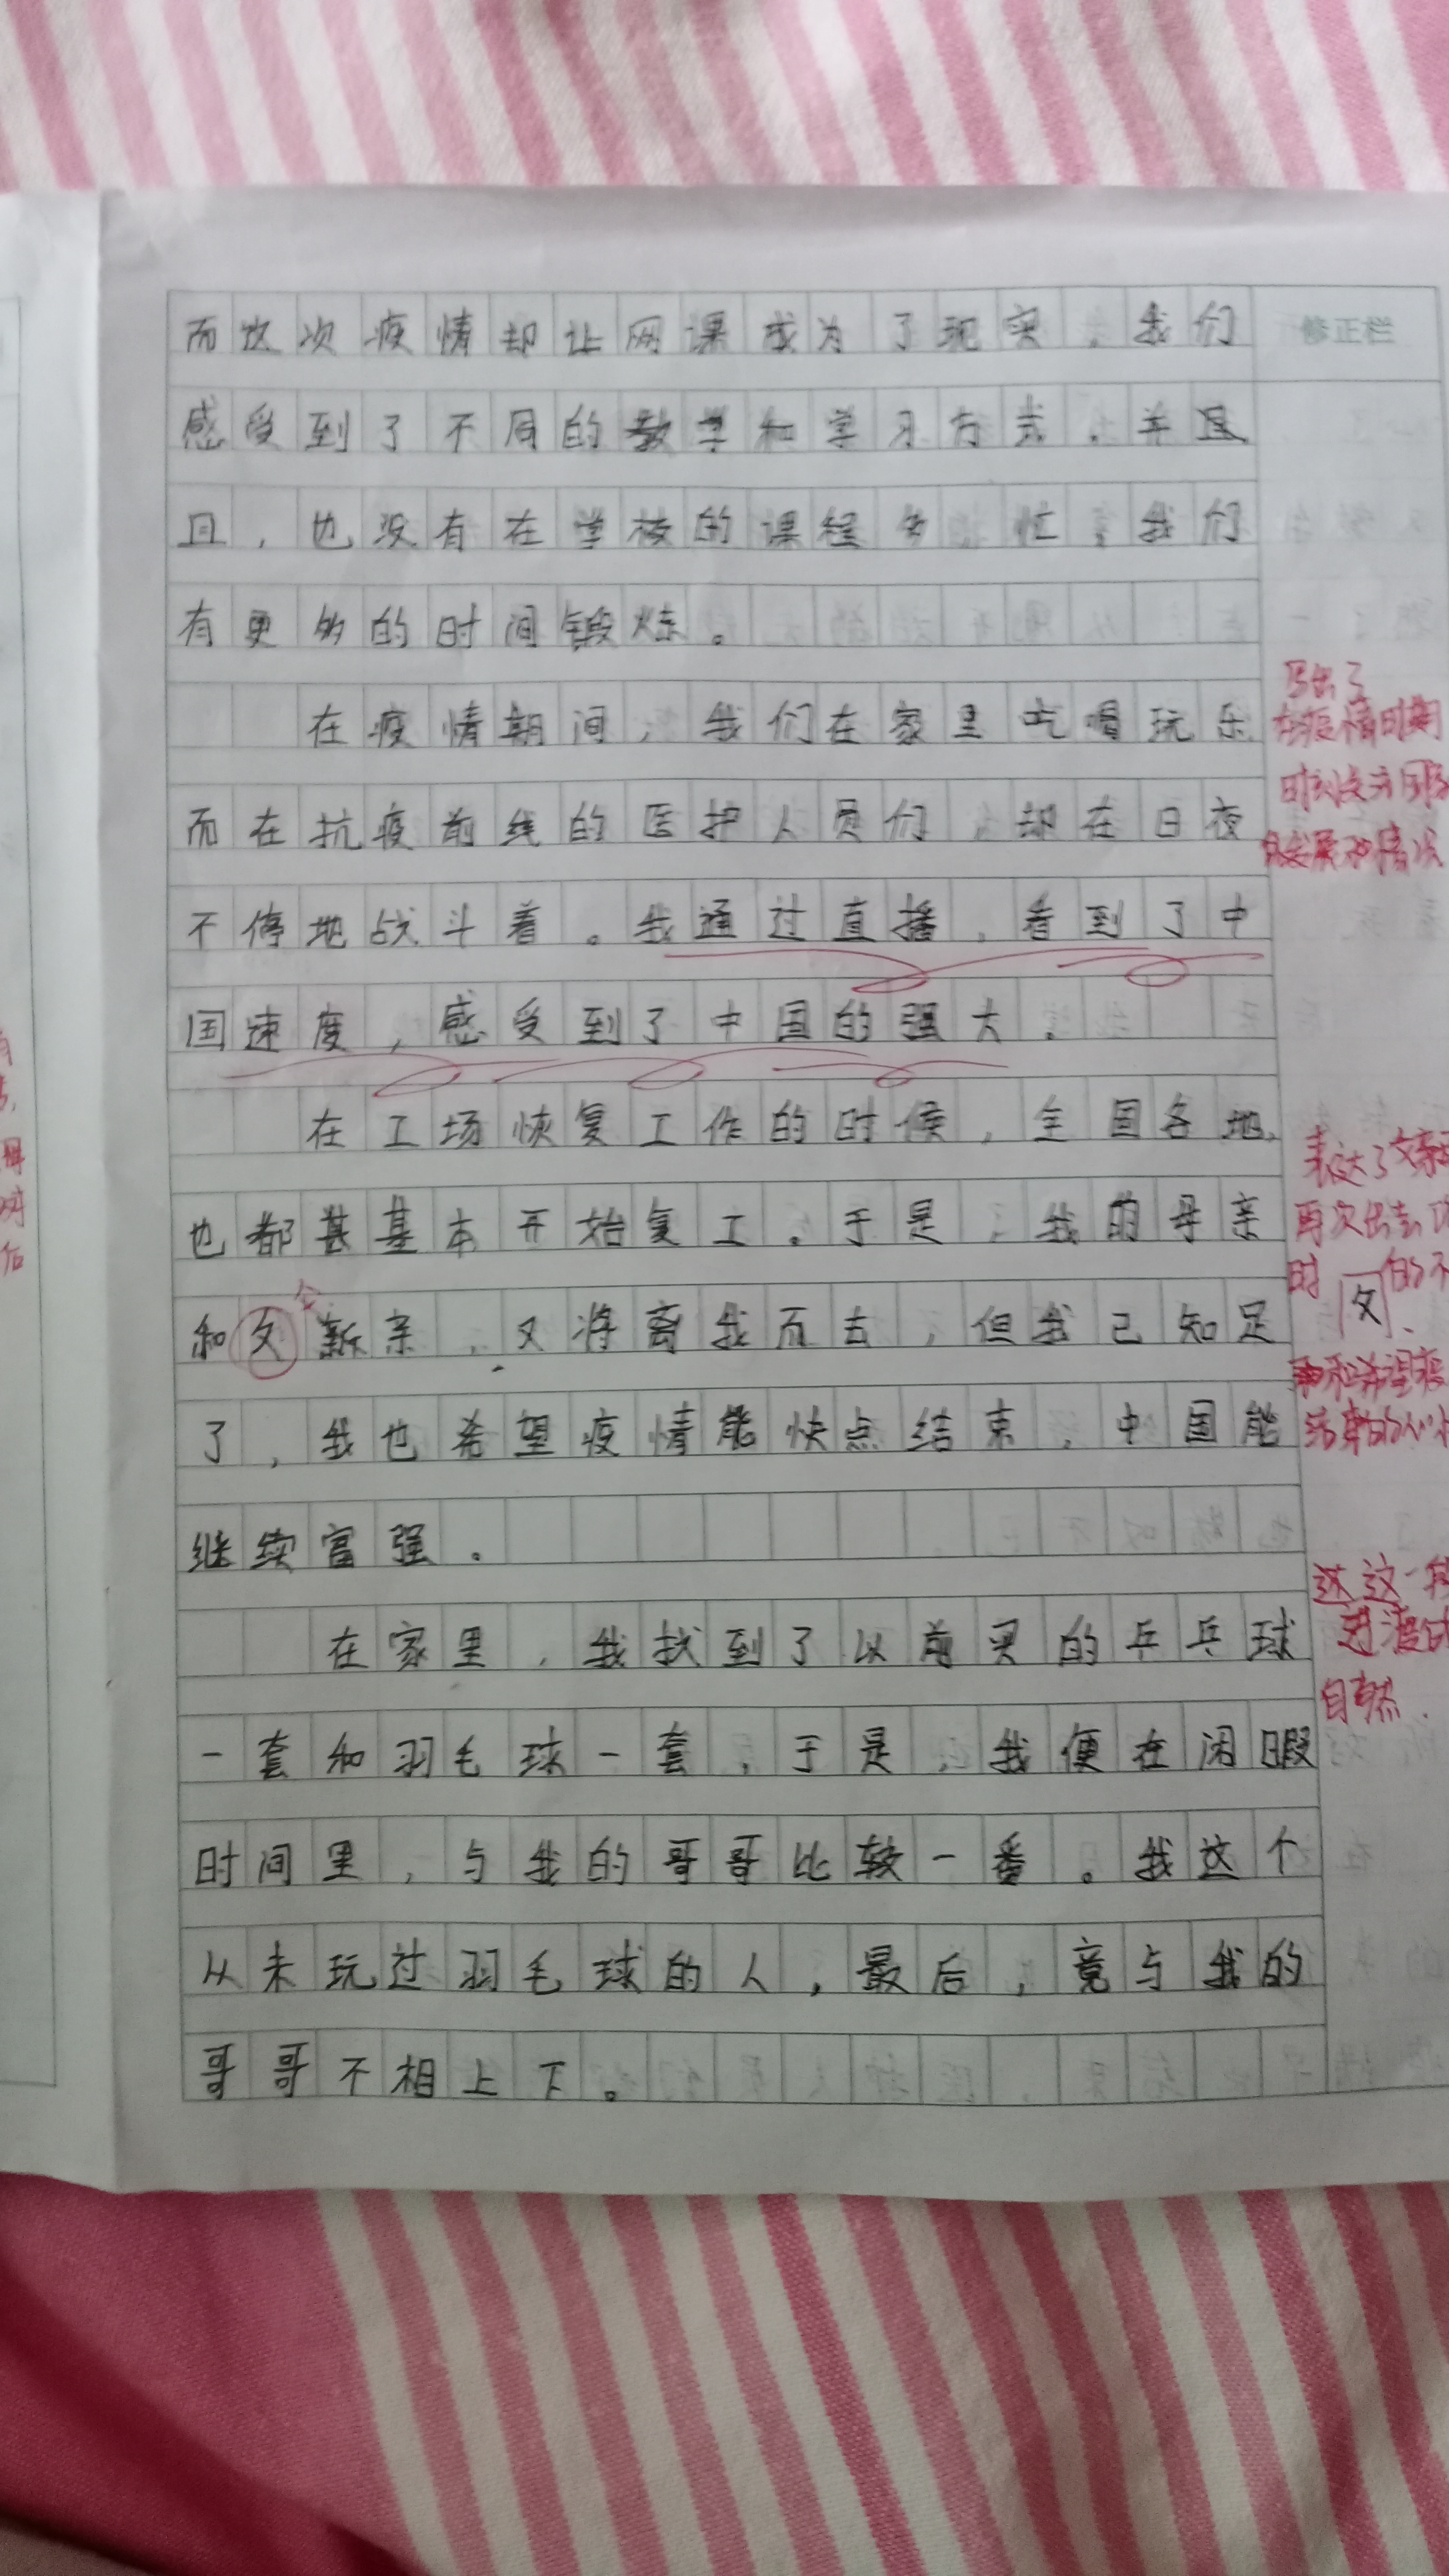 而这次疫情却让网课成为了现实,我们
修正栏
感受到了不同的教学和学习方式,并且
且,也没有在学校的课程多,忙,我们
有更多的时间锻炼。
在疫情期间,我们在家里吃喝玩乐
而在抗疫前线的医护人员们,却在日夜
不停地战斗着。我通过直播,看到了中
国速度,感受到了中国的强大.
在工场恢复工作的时候,全国各地,
也都甚基本开始复工。于是,我的母亲
和父新亲,又将离我而去,但我已知足
了,我也希望疫情能快点结束,中国能
继续富强.
在家里,我找到了以前买的乒乓球
一套和羽毛球一套,于是,我便在闲暇
时间里,与我的哥哥比较一番。我这个
从未玩过羽毛球的人,最后,竟与我的
哥哥不相上下。
写出了
在疫情时期
时刻关注国家
的发展和情况
表达了父亲
再次出去
时 父 的不
和希望疫
结束的心情
这一段
进渡的
自然.